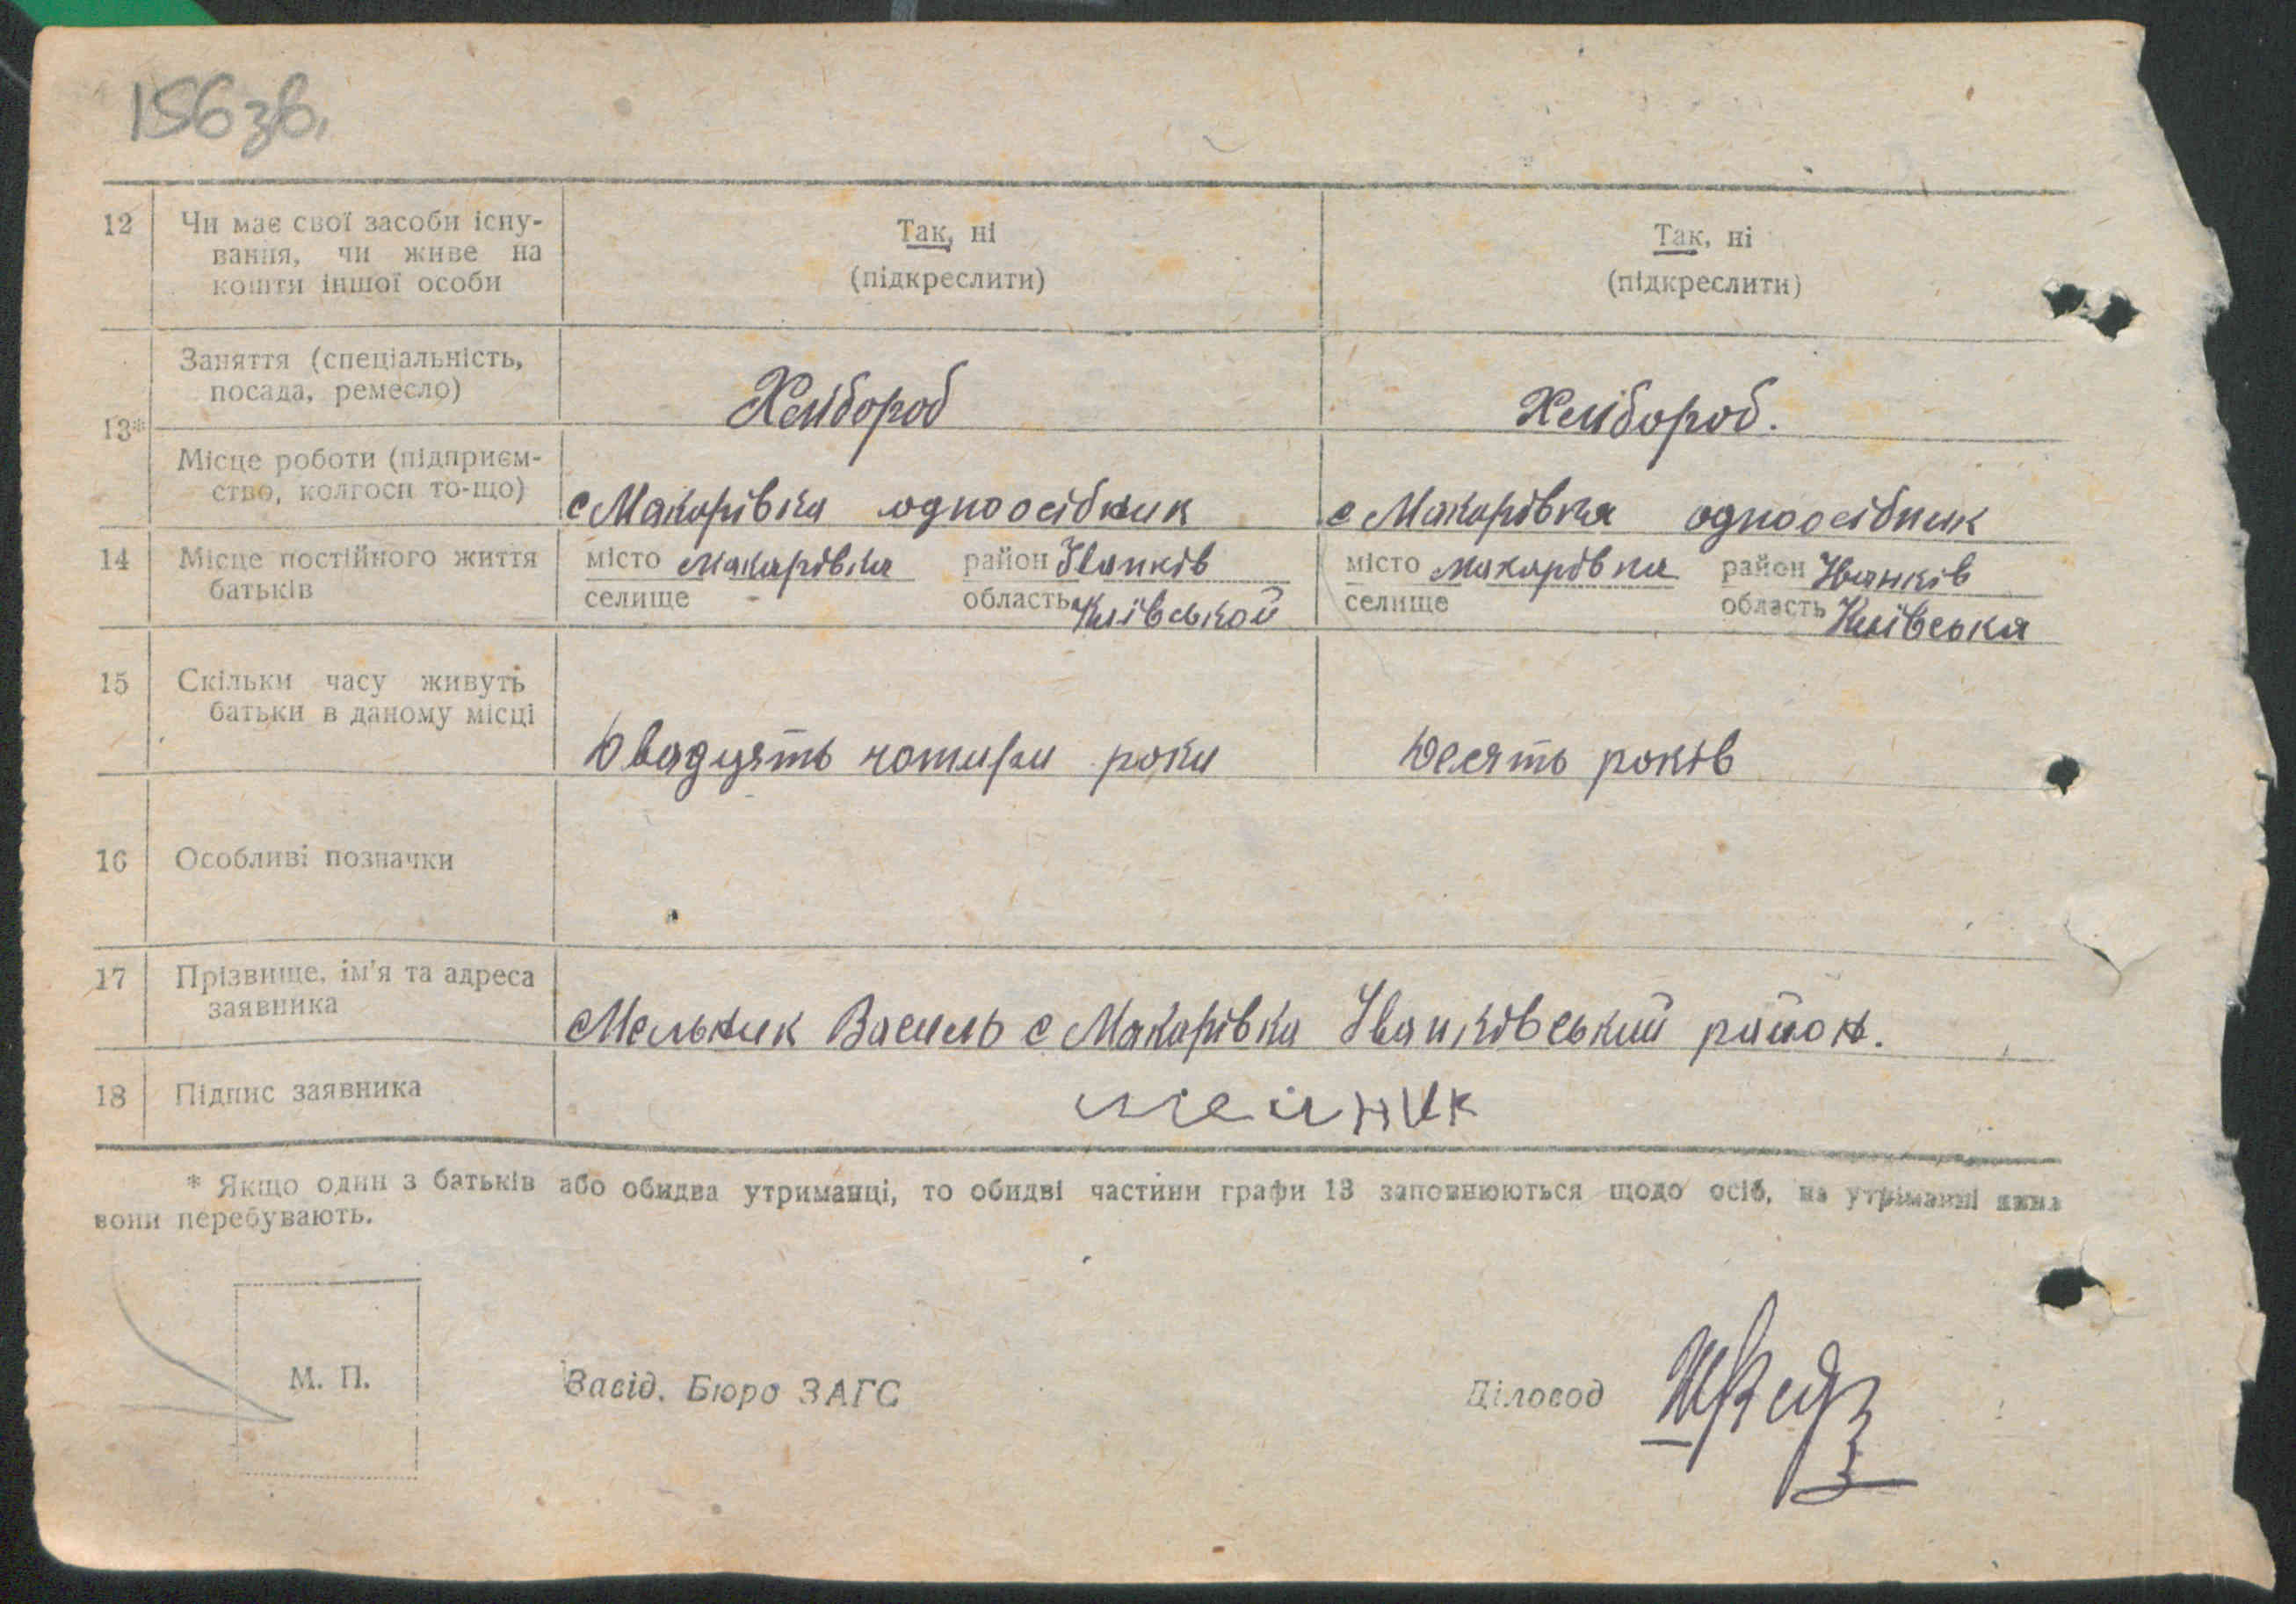 156 зв.
12 Чи має свої засоби існу-
вання, чи живе на
кошти іншої особи
Так, ні
(підкреслити)
Так, ні
(підкреслити)
13*
Заняття (спеціальність,
посада, ремесло)
Хлібороб
Хлібороб.
Місце роботи (підприєм-
ство, колгосп то-що)
с Макарівка одноосібник
с Макарівка одноосібник
14 Місце постійного життя
батьків
місто Макарівка район Іванків
селище - область Київськой
місто Макарівка район Іванків
селище область Київська
15 Скільки часу живуть
батьки в даному місці
Двадцять чотири роки
Десять років
16 Особливі позначки
17 Прізвище, ім'я та адреса
заявника
Мельник Василь с Макарівка Іванківський район.
18 Підпис заявника
* Якщо один з батьків або обидва утриманці, то обидві частини графи 13 заповнюються щодо осіб, на утриманні яких
вони перебувають.
М. П.
Завід. Бюро ЗАГС
Діловод